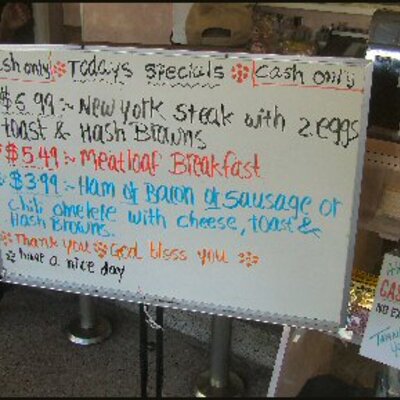 Cash only Todays specials Cash only
$6.99:- New York Steak with 2 eggs
toast & Hash Browns
$5.49:- Meatloaf Breakfast
$3.99:- Ham or Bacon or Sausage or
chili omelete with cheese, toast &
Hash Browns.
Thank you God bless you
have a nice day
CAS
NO EX
THANK